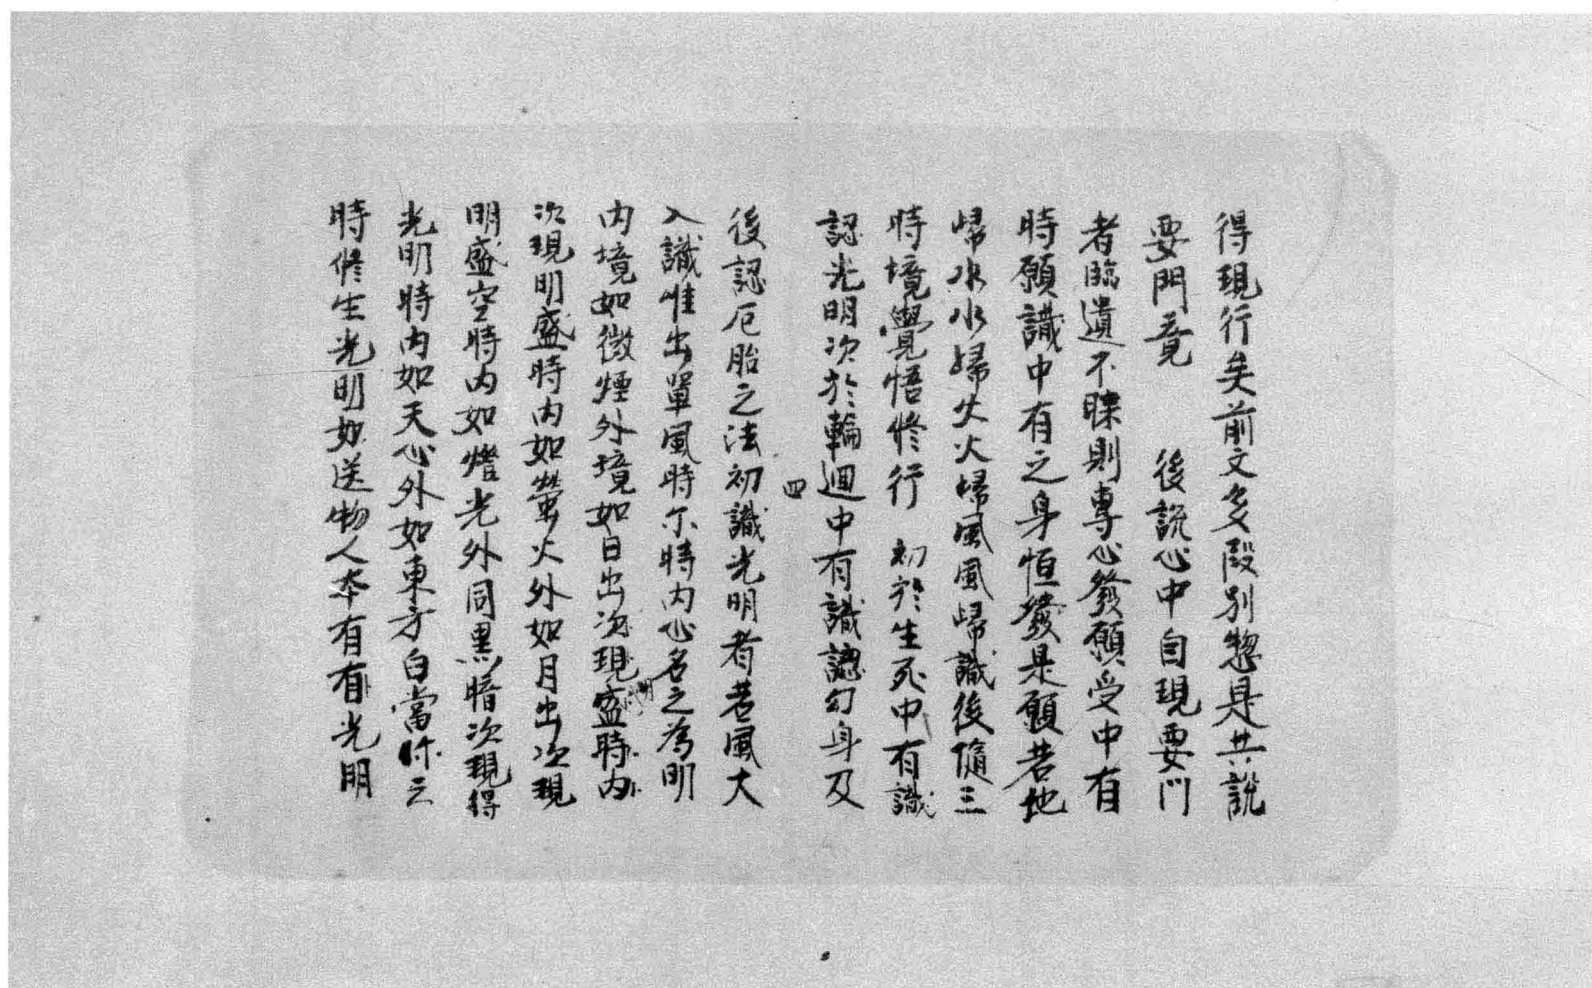 得現行矣前文多段别惣是共說
要門竟 後說心中自現要門
者臨遺不昧則專心發願受中有
時願識中有之身恒發是願若地
歸水水歸火火歸風風歸識後隨三
時境覺悟修行 初於生死中有識
認光明次於輪迴中有識認幻身及
四
後認厄胎之法初識光明者若風大
入識惟出單風時尔時内心名之為明
内境如微煙外境如日出次現明盛時内
次現明盛時内如螢火外如月出次現
明盛空時内如燈光外同黑暗次現得
光明時内如天心外如東方白當作之
時修生光明如送物人本有有光明